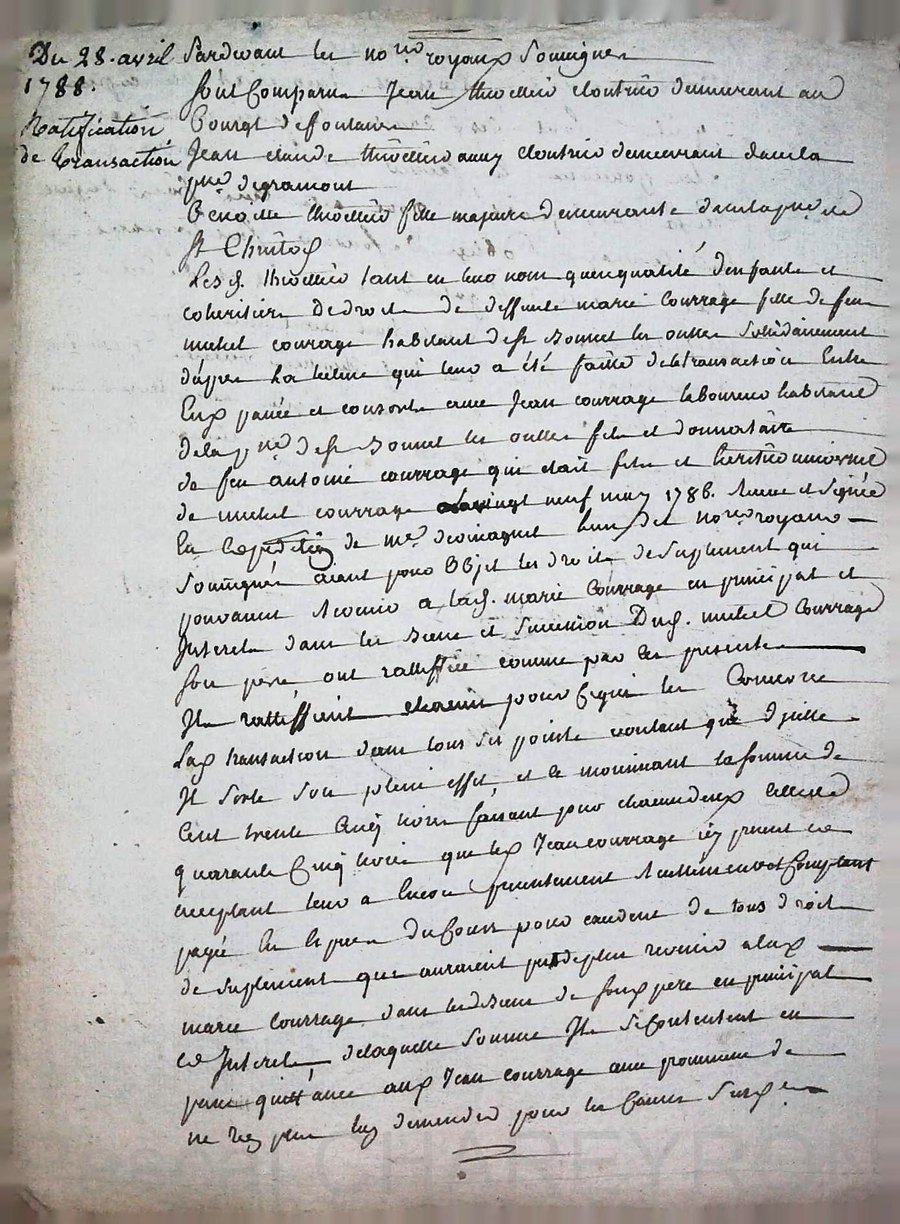 Du 28. avril
1788.
Ratification
de transaction
Pardevant les no.res royaux soussignes
sont Comparu Jean thiollier cloutrier demeurant au
Bourgt de foulain
Jean claude thiollier aussy cloutrier demeurant dans la
psse de gramont
Benoite thiollier fille majeure demeurante dans la psse de
st Christof
Les ds. thiollier tant en leur nom qu'en qualité d'enfants et
coheritiers de droit de deffunte marie courrage fille de feu
michel courrage habitant de st Bonnet les oulles solidairement
d'apres La lecture qui leur a été faitte de la transaction Entre
Eux passée et consorts avec Jean courrage laboureur habitant
de la psse de st Bonnet les oulles fils et donnataire
de feu antoine courrage qui etait fils et heritier universel
de michel courrage vingt neuf may 1786. Receue et signée
En Expedition de me l'un des nores royaux
soussignés aiant pour Objet les droits de suplement qui
pouvaient Revenir a lad. marie Courrage en principal et
Interets dans les Biens et succession Dud. michel Courrage
son pere ont rattiffiée comme par les presentes
Ils rattiffient pour ce qui les Concerne
Lad transaction dans tous ses points voulant que d'icelle
Il sorte son plein effet, et ce moiennant la somme de
Cent trente Cinq livres faisant pour chacun deux celle de
quarante Cinq livres que led Jean courrage icy present et
acceptant leur a Encore presentement Reellement et Comptant
payée En Especes du Cours pour de tous droits
de suplement que auraient pu de plus revenir a lad
marie Courrage dans les Biens de sond pere en principal
et Interets, de laquelle somme Ils se Contentent en
passe quittance aud Jean courrage avec promesse de
ne Rien plus luy demander pour les Causes susd.es